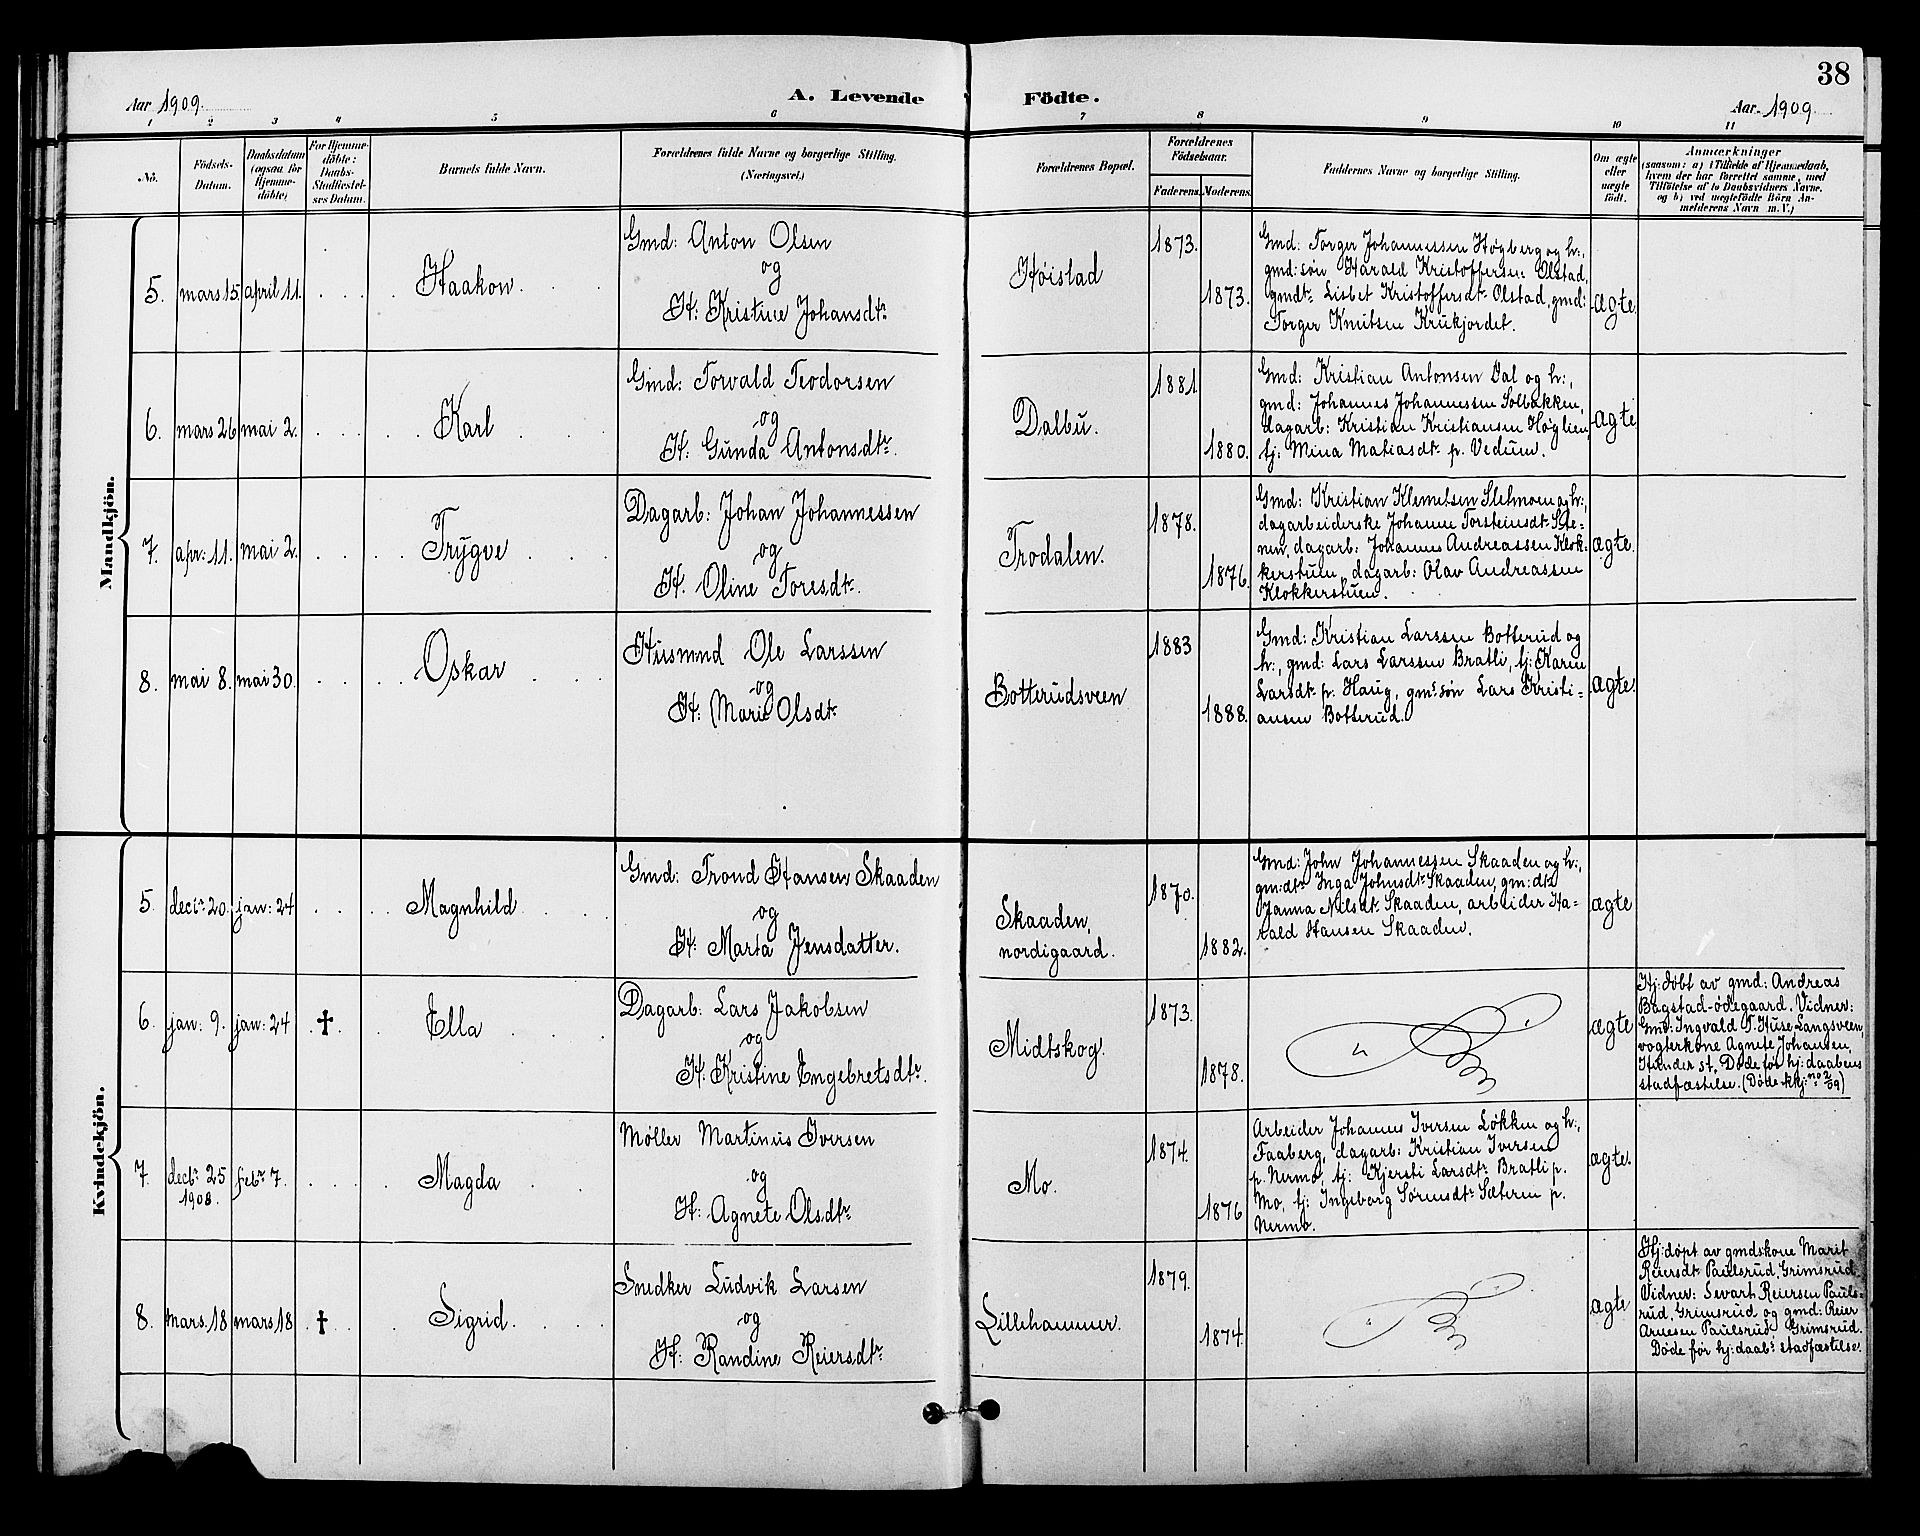 38
Aar 1909.
A. Levende Födte.
Aar 1909.
1 2 3 4 5 6 7 8 9 10 11
No.
Födsels-
Datum.
Daabsdatum
(ogsaa for
Hjemme-
döbte)
For Hjemme-
döbte:
Daabs-
Stadfæstel-
ses Datum.
Barnets fulde Navn.
Forældrenes fulde Navne og borgerlige Stilling.
(Næringsvei.)
Forældrenes Bopæl.
Forældrenes
Födselsaar.
Faderens. Moderens.
Faddernes Navne og borgerlige Stilling.
Om ægte
eller
uægte
födt.
Anmærkninger
(saasom: a) i Tilfælde af Hjemmedaab,
hvem der har forrettet samme, med
Tilföielse af to Daabsvidners Navne,
og b) ved uægtefödte Börn An-
melderens Navn m. V.)
Mandkjön.
5. mars 15. april 11. Haakon
Gmd: Anton Olsen
og
H: Kristine Johansdtr
Høistad
1873.
1873.
Gmd: Torger Johannessen Høgberg og h:,
gmd:søn Harald Kristoffersen Olstad,
gmdtr Lisbet Kristoffersdtr Olstad, gmd:
Torger Knutsen Krukjordet.
ægte.
6. mars 26 mai 2. Karl
Gmd: Torvald Teodorsen
og
H: Gunda Antonsdtr.
Dalbu.
1881.
1880.
Gmd: Kristian Antonsen Dal og h:,
gmd: Johannes Johannessen Solbakken,
dagarb: Kristian Kristiansen Høglien,
tj: Mina Matiasdtr p. Vedum.
ægte
7. apr: 11. mai 2. Trygve
Dagarb: Johan Johannessen
og
H. Oline Toresdtr.
Trodalen.
1878.
1876.
Gmd: Kristian Klemetsen Sletmoen og h:,
dagarbeiderske Johanne Torsteinsdtr Ste-
nen, dagarb: Johannes Andreassen Klok-
kerstuen, dagarb: Olav Andreassen
Klokkerstuen.
ægte.
8. mai 8. mai 30. Oskar
Husmnd Ole Larssen
og
H: Marie Olsdtr
Botterudsveen
1883
1888.
Gmd: Kristian Larssen Botterud og
h:, gmd: Lars Larssen Bratli, tj: Karen
Larsdtr p. Haug, gm:søn Lars Kristi-
ansen Botterud.
ægte.
Kvindekjön.
5. decbr 20. jan: 24 Magnhild
Gmd: Trond Hansen Skaaden
og
H: Marta Jensdatter.
Skaaden,
nordigaard.
1870.
1882.
Gmd: John Johannessen Skaaden og h:,
gm:dtr Inga Johnsdtr Skaaden, gm:dtr
Janna Nilsdtr Skaaden, arbeider Ha-
rald Hansen Skaaden.
ægte
6. jan: 9. jan: 24 † Ella
Dagarb: Lars Jakobsen
og
H: Kristine Engebretsdtr.
Midtskog.
1873.
1878.
ægte
Hj:døbt av gmd: Andreas
Bagstad-ødegaard. Vidner:
Gmd: Ingvald T. Huse Langsveen,
vogterkone Agnete Johansen,
Hunder st. Døde før hj:daabens
stadfæstelse. (Døde kkj: no 2/09)
7. decbr 25 1908. febr 7. Magda
Møller Martinus Iversen
og
H: Agnete Olsdtr
Mo.
1874.
1876
Arbeider Johannes Iversen Løkken og h:,
Faaberg, dagarb: Kristian Iversen
p. Nermo, tj: Kjersti Larsdtr Bratli p.
Mo, tj: Ingeborg Sørensdtr Sæteren p.
Nermo.
ægte.
8. mars. 18 mars 18 † Sigrid.
Snedker Ludvik Larsen
og
H: Randine Reiersdtr
Lillehammer.
1879.
1874.
ægte
Hj:døpt av gmdskone Marit
Reiersdtr Paulsrud, Grimsrud.
Vidner: Sevart Reiersen Pauls-
rud, Grimsrud og gmd: Reier
Arnesen Paulsrud, Grimsrud.
Døde før hj:daabs stadfæstelse.